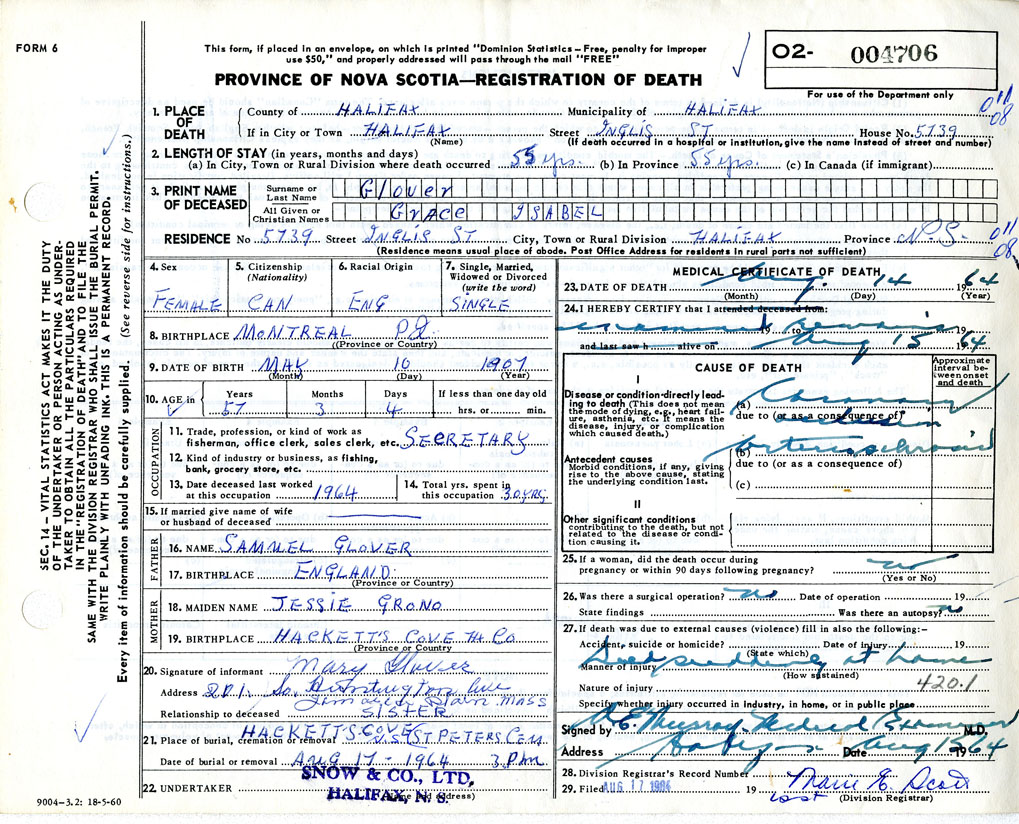 FORM 6
This form, if placed in an envelope, on which is printed "Dominion Statistics – Free, penalty for improper
use $50," and properly addressed will pass through the mail "FREE"
PROVINCE OF NOVA SCOTIA—REGISTRATION OF DEATH
O2- 004706
For use of the Department only
011
08
SEC. 14 – VITAL STATISTICS ACT MAKES IT THE DUTY
OF THE UNDERTAKER OR PERSON ACTING AS UNDER-
TAKER TO OBTAIN ALL THE PARTICULARS REQUIRED
IN THE "REGISTRATION OF DEATH" AND TO FILE THE
SAME WITH THE DIVISION REGISTRAR WHO SHALL ISSUE THE BURIAL PERMIT.
WRITE PLAINLY WITH UNFADING INK. THIS IS A PERMANENT RECORD.
Every item of information should be carefully supplied. (See reverse side for instructions.)
1. PLACE OF DEATH
County of HALIFAX Municipality of HALIFAX
If in City or Town HALIFAX Street INGLIS ST House No. 5739
(Name) (If death occurred in a hospital or institution, give the name instead of street and number)
2. LENGTH OF STAY (in years, months and days)
(a) In City, Town or Rural Division where death occurred 55 yrs. (b) In Province 55 yrs. (c) In Canada (if immigrant)
3. PRINT NAME OF DECEASED
Surname or Last Name Glover
All Given or Christian Names Grace ISABEL
RESIDENCE No 5739 Street INGLIS ST City, Town or Rural Division HALIFAX Province N.S.
011
08
(Residence means usual place of abode. Post Office Address for residents in rural parts not sufficient)
4. Sex
FEMALE
5. Citizenship
(Nationality)
CAN
6. Racial Origin
ENG
7. Single, Married,
Widowed or Divorced
(write the word)
SINGLE
8. BIRTHPLACE MONTREAL P.Q.
(Province or Country)
9. DATE OF BIRTH MAY 10 1907
(Month) (Day) (Year)
10. AGE in
Years Months Days If less than one day old
57 3 4 hrs. or min.
OCCUPATION
11. Trade, profession, or kind of work as
fisherman, office clerk, sales clerk, etc. SECRETARY
12. Kind of industry or business, as fishing,
bank, grocery store, etc.
13. Date deceased last worked
at this occupation 1964
14. Total yrs. spent in
this occupation 30 yrs.
15. If married give name of wife
or husband of deceased
FATHER
16. NAME SAMUEL GLOVER
17. BIRTHPLACE ENGLAND
(Province or Country)
MOTHER
18. MAIDEN NAME JESSIE GRONO
19. BIRTHPLACE HACKETT'S COVE Hx Co
(Province or Country)
20. Signature of informant Mary Glover
Address 201 So. Huntington Ave
Jamaica Plain Mass
Relationship to deceased SISTER
21. Place of burial, cremation or removal HACKETT'S COVE ST PETERS CEM.
Date of burial or removal AUG 17 – 1964 3 PM
22. UNDERTAKER SNOW & CO., LTD,
HALIFAX, N. S.
(Name and address)
9004–3.2: 18-5-60
MEDICAL CERTIFICATE OF DEATH
23. DATE OF DEATH Aug. 14 1964
(Month) (Day) (Year)
24. I HEREBY CERTIFY that I attended deceased from:
examined remains 19
to Aug 15 1964
and last saw h alive on
CAUSE OF DEATH
Approximate
interval be-
tween onset
and death
I
Disease or condition directly lead-
ing to death (This does not mean
the mode of dying, e.g., heart fail-
ure, asthenia, etc. It means the
disease, injury, or complication
which caused death.)
(a) Coronary
occlusion
due to (or as a consequence of)
(b)
Antecedent causes
Morbid conditions, if any, giving
rise to the above cause, stating
the underlying condition last.
due to (or as a consequence of)
(c)
II
Other significant conditions
contributing to the death, but not
related to the disease or condi-
tion causing it.
25. If a woman, did the death occur during
pregnancy or within 90 days following pregnancy? no
(Yes or No)
26. Was there a surgical operation? no Date of operation 19
State findings Was there an autopsy? no
27. If death was due to external causes (violence) fill in also the following:–
Accident, suicide or homicide? Date of injury 19
(State which)
Died suddenly at home
Manner of injury
(How sustained)
Nature of injury 420.1
Specify whether injury occurred in industry, in home, or in public place
Signed by Murray Medical Examiner M.D.
Address Halifax Date Aug 1964
28. Division Registrar's Record Number
29. Filed AUG 17 1964 19 Marie E. Scott
(Division Registrar)